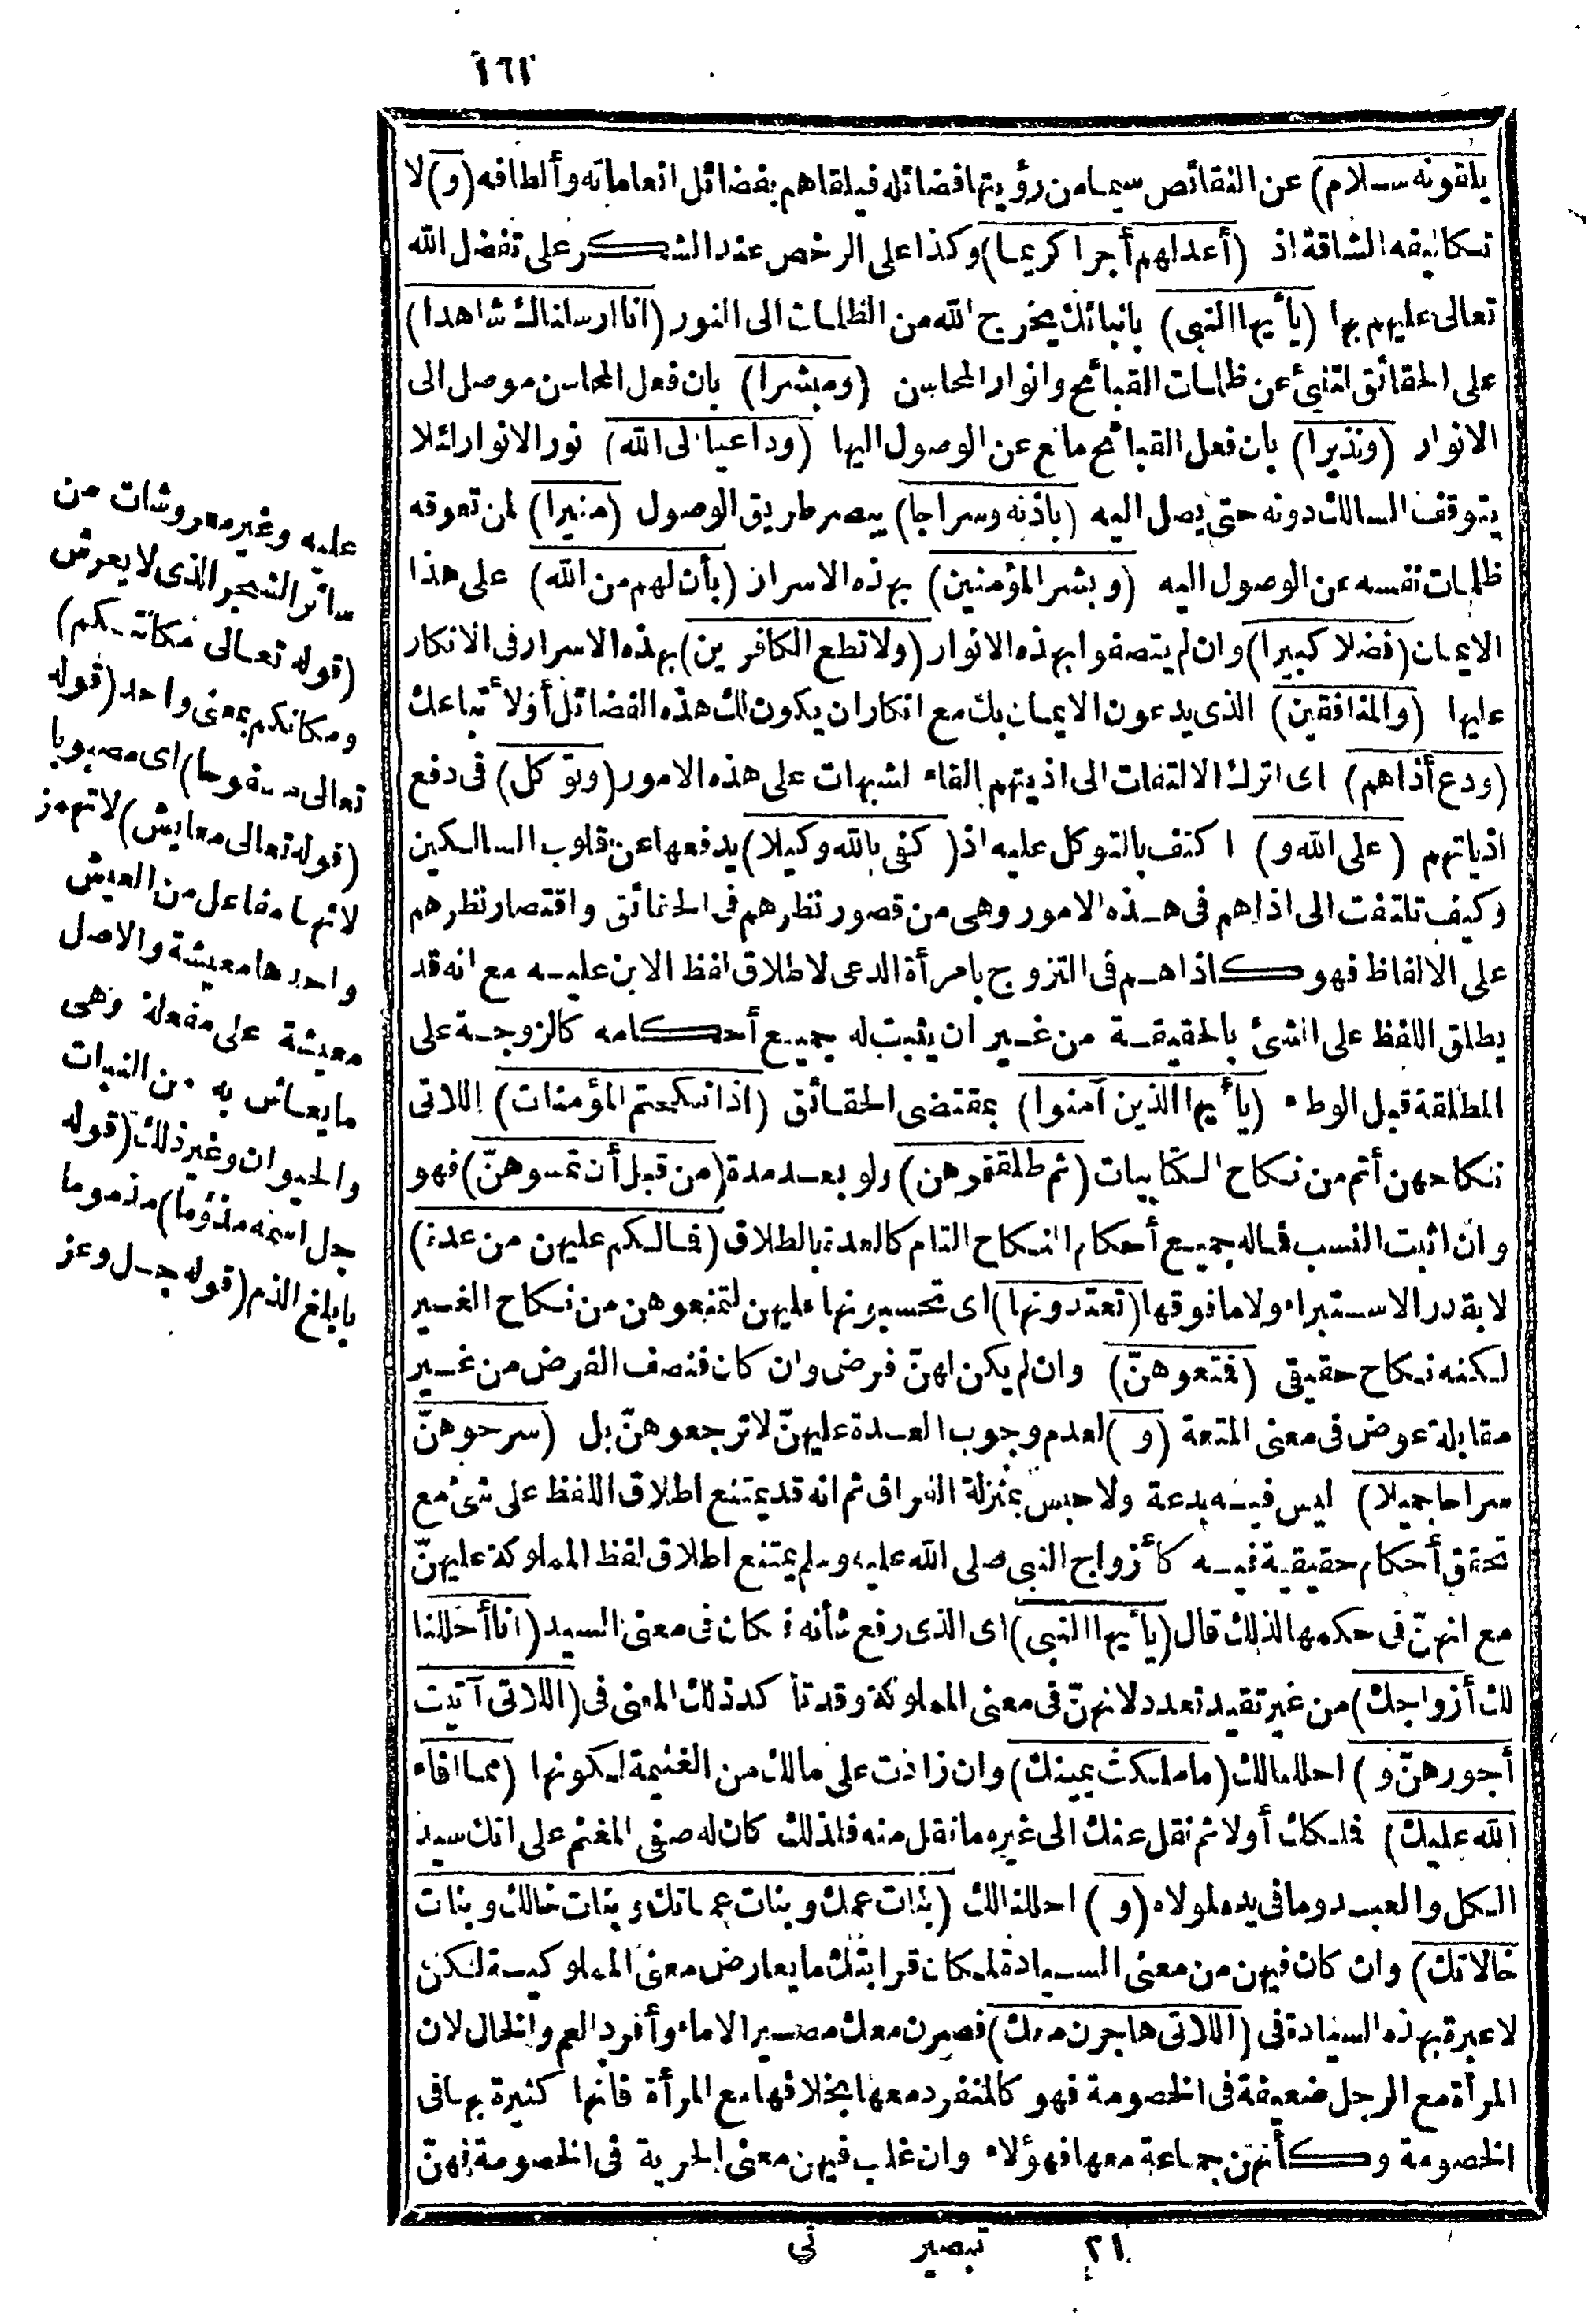 ١٦١
يلقونه سلام) عن النقائص سيما من رؤيتها فضائله فيلقاهم بفضائل انعاماته وألطافه (و) لا
تكاليفه الشاقة اذ (أعد لهم أجرا كريما) وكذا على الرخص عند الشكر على تفضل الله
تعالى عليهم بها (يا أيها النبى) بانبائك يخرج الله من الظلمات الى النور (انا ارسلناك شاهدا)
على الحقائق لتنبئ عن ظلمات القبائح وانوار المحاسن (ومبشرا) بان فعل المحاسن موصل الى
الانوار (ونذيرا) بان فعل القبائح مانع عن الوصول اليها (وداعيا الى الله) نور الانوار لئلا
يتوقف السالك دونه حتى يصل اليه (باذنه وسراجا) يبصر طريق الوصول (منيرا) لمن تعوقه
ظلمات نفسه عن الوصول اليه (وبشر المؤمنين) بهذه الاسرار (بأن لهم من الله) على هذا
الايمان (فضلا كبيرا) وان لم يتصفوا بهذه الانوار (ولا تطع الكافرين) بهذه الاسرار فى الانكار
عليها (والمنافقين) الذى يدعون الايمان بك مع انكار ان يكون لك هذه الفضائل أولأ تباعك
(ودع أذاهم) اى اترك الالتفات الى اذيتهم القاء لشبهات على هذه الامور (وتوكل) فى دفع
اذياتهم (على الله و) اكتف بالتوكل عليه اذ (كفى بالله وكيلا) يدفعها عن قلوب السالكين
وكيف تلتفت الى اذاهم فى هذه الامور وهى من قصور نظرهم فى الحقائق واقتصار نظرهم
على الالفاظ فهو كاذاهم فى التزوج بامرأة الدعى لاطلاق لفظ الابن عليه مع انه قد
يطلق اللفظ على الشئ بالحقيقة من غير ان يثبت له جميع أحكامه كالزوجة على
المطلقة قبل الوطء (يا أيها الذين آمنوا) بمقتضى الحقائق (اذا نكحتم المؤمنات) اللاتى
نكاحهن أتم من نكاح الكتابيات (ثم طلقتموهن) ولو بعد مدة (من قبل أن تمسوهنّ) فهو
وان اثبت النسب فماله جميع أحكام النكاح التام كالعدة بالطلاق (فمالكم عليهن من عدة)
لا بقدر الاستبراء ولا ما فوقها (تعتدونها) اى تحسبونها عليهن لتمنعوهن من نكاح الغير
لكنه نكاح حقيقى (فمتعوهنّ) وان لم يكن لهنّ فرض وان كان فنصف الفرض من غير
مقابلة عوض فى معنى المتعة (و) لعدم وجوب العدة عليهنّ لا ترجعوهنّ بل (سرحوهنّ
سراحا جميلا) ليس فيه بدعة ولا حبس بمنزلة الفراق ثم انه قد يمتنع اطلاق اللفظ على شئ مع
تحقق أحكام حقيقية فيه كأزواج النبى صلى الله عليه وسلم يمتنع اطلاق لفظ المملوكة عليهنّ
مع انهنّ فى حكمها لذلك قال (يا أيها النبى) اى الذى رفع شأنه فكان فى معنى السيد (انا أحللنا
لك أزواجك) من غير تقيد تعدد لانهنّ فى معنى المملوكة وقد تأكد ذلك المعنى فى (اللاتى آتيت
أجورهنّ و) احللنالك (ما ملكت يمينك) وان زادت على مالك من الغنيمة لكونها (مما افاء
الله عليك) فملكك أولا ثم نقل عنك الى غيره ما نقل منه فلذلك كان له صفى المغنم على انك سيد
الكل والعبد وما فى يده لمولاه (و) احللنا لك (بنات عمك وبنات عماتك وبنات خالك وبنات
خالاتك) وان كان فيهن من معنى السيادة لمكان قرابتك ما يعارض معنى المملوكية لكن
لا عبرة بهذه السيادة فى (اللاتى هاجرن معك) فصرن معك مصير الاماء وأفرد العم والخال لان
المرأة مع الرجل ضعيفة فى الخصومة فهو كالمنفرد معها بخلافها مع المرأة فانها كثيرة بها فى
الخصومة وكأنهنّ جماعة معها فهؤلاء وان غلب فيهن معنى الحرية فى الخصومة فهنّ
عليه وغير معروشات من
سائر الشجر الذى لا يعرش
(قوله تعالى مكانتكم)
ومكانكم بمعنى واحد (قوله
تعالى مسفوحا) اى مصبوبا
(قوله تعالى معايش) لا تهمز
لانها مفاعل من العيش
واحدها معيشة والاصل
معيشة على مفعلة وهى
ما يعاش به من النبات
والحيوان وغير ذلك (قوله
جل اسمه مذؤما) مذموما
بابلغ الذم (قوله جل وعز
٢١ تبصير نى